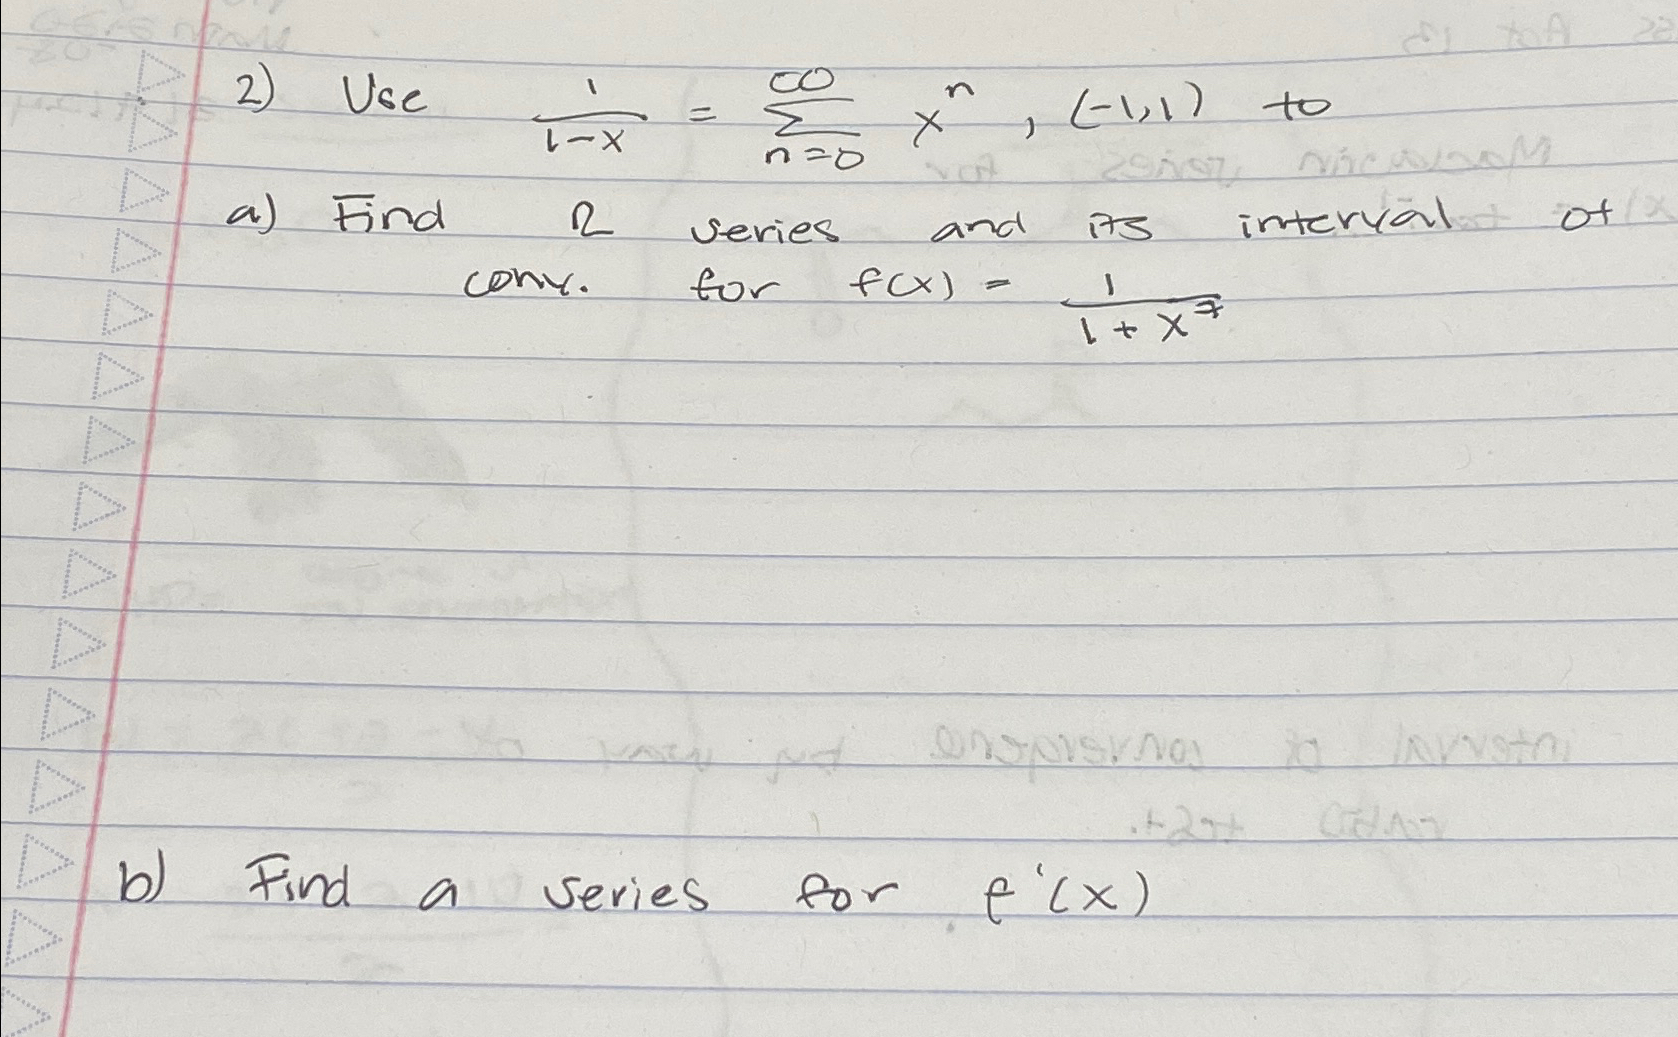 2) Use 1/(1-x) = ∑_{n=0}^{∞} x^n, (-1,1) to
a) Find a series and its interval of
conv. for f(x) = 1/(1+x^7)
b) Find a series for f'(x)